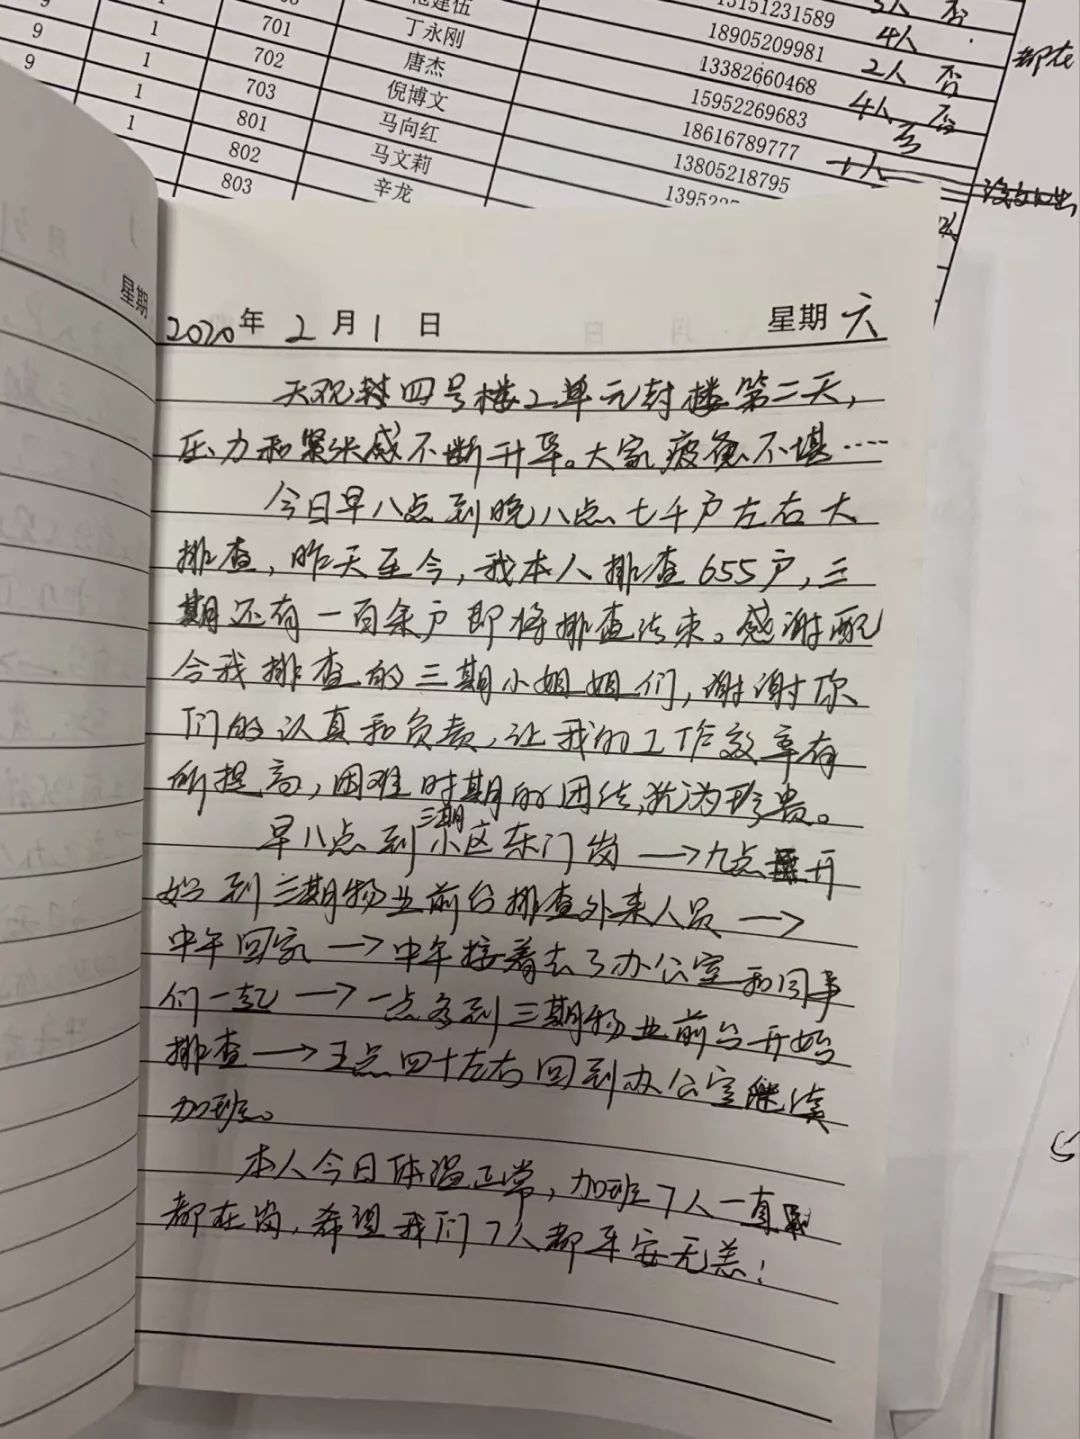 9 1 701 丁永刚 18905209981 4人
9 1 702 唐杰 13382660468 2人 否 都在
1 703 倪博文 15952269683 4人 否
1 801 马向红 18616789777
802 马文莉 13805218795 1人
803 辛龙 139522
13151231589
星期
2020年 2 月 1 日 星期 六
天观封四号楼2单元封楼第二天，
压力和紧张感不断升华。大家疲惫不堪……
今日早八点到晚八点七千户左右大
排查，昨天至今，我本人排查655户，三
期还有一百余户即将排查结束。感谢配
合我排查的三期小姐姐们，谢谢你
们的认真和负责，让我的工作效率有
所提高，困难时期的团结，尤为珍贵。
早八点到三期小区东门岗→九点开
始到三期物业前台排查外来人员→
中午回家→中午接着去了办公室和同事
们一起→一点多到三期物业前台开始
排查→五点四十左右回到办公室继续
加班。
本人今日体温正常，加班7人一直
都在岗，希望我们7人都平安无恙！